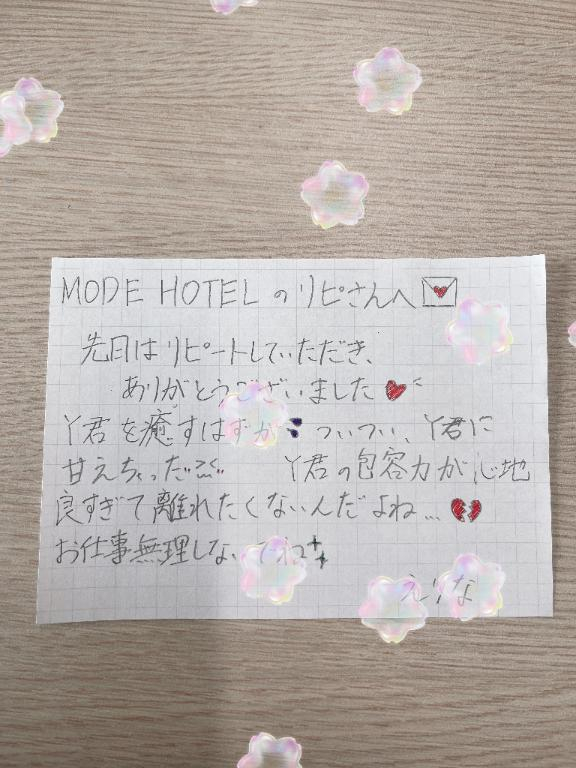 MODE HOTEL のリピさんへ
先日はリピートしていただき、
ありがとうございました
Y君を癒すはずが ついつい、Y君に
甘えちゃった Y君の包容力が心地
良すぎて離れたくないんだよね...
お仕事無理しないでね
えりな